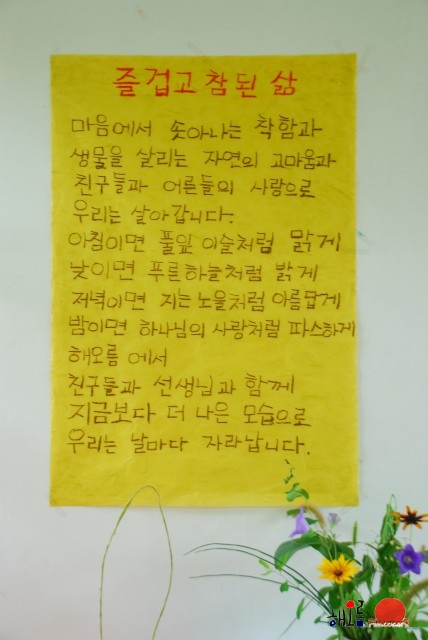 즐겁고 참된 삶
마음에서 솟아나는 착함과
생물을 살리는 자연의 고마움과
친구들과 어른들의 사랑으로
우리는 살아갑니다.
아침이면 풀잎 이슬처럼 맑게
낮이면 푸른하늘처럼 밝게
저녁이면 지는 노을처럼 아름답게
밤이면 하나님의 사랑처럼 따스하게
해오름에서
친구들과 선생님과 함께
지금보다 더 나은 모습으로
우리는 날마다 자라납니다.
해오름